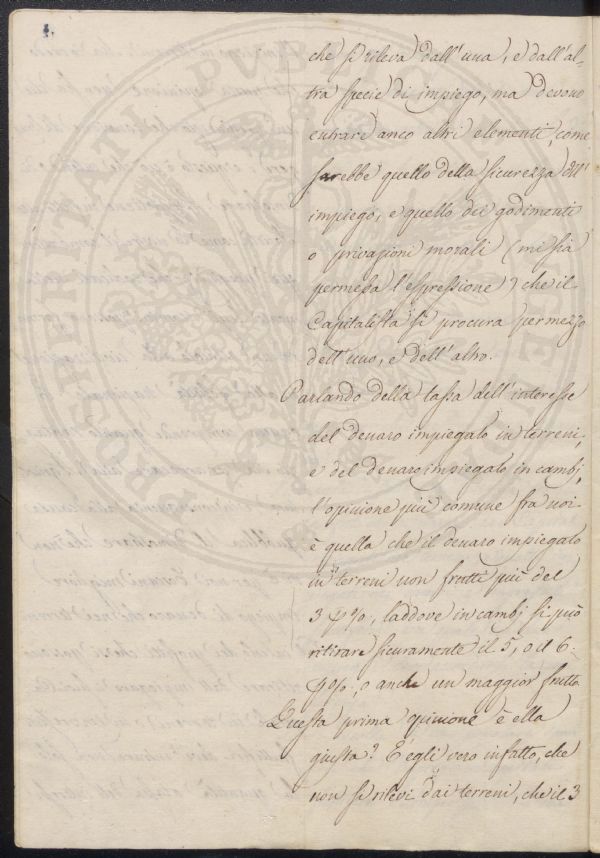 4.
che si rileva dall'una, e dall'al-
tra specie di impiego, ma devono
entrare anco altri elementi, come
sarebbe quello della sicurezza dell'
impiego, e quello dei godimenti
o privazioni morali (mi sia
permessa l'espressione) che il
Capitalista si procura per mezzo
dell'uno, e dell'altro.
Parlando della tassa dell'interesse
del denaro impiegato in terreni,
e del denaro impiegato in cambj,
l'opinione più comune fra noi
è quella che il denaro impiegato
in terreni non frutti più del
3 p%, laddove in cambj si può
ritirare sicuramente il 5, o il 6.
p%, o anche un maggior frutto
Questa prima opinione è ella
giusta? È egli vero infatto, che
non si rilevi dai terreni, che il 3